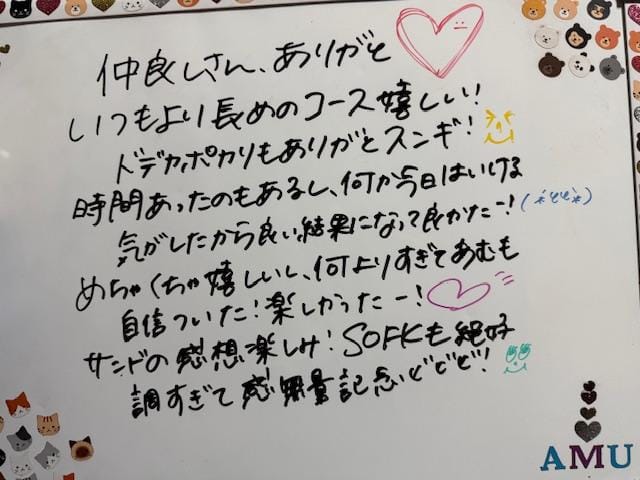 仲良しさん、ありがと
いつもより長めのコース嬉しい!
ドデカポカリもありがとスンギ!
時間あったのもあるし、何か今日はいける
気がしたから良い結果になって良かたー!
めちゃくちゃ嬉しいし、何よりすぎてあむも
自信ついた!楽しかったー!
サンドの感想楽しみ!SOFKも絶好
調すぎて感無量記念どどど!
AMU